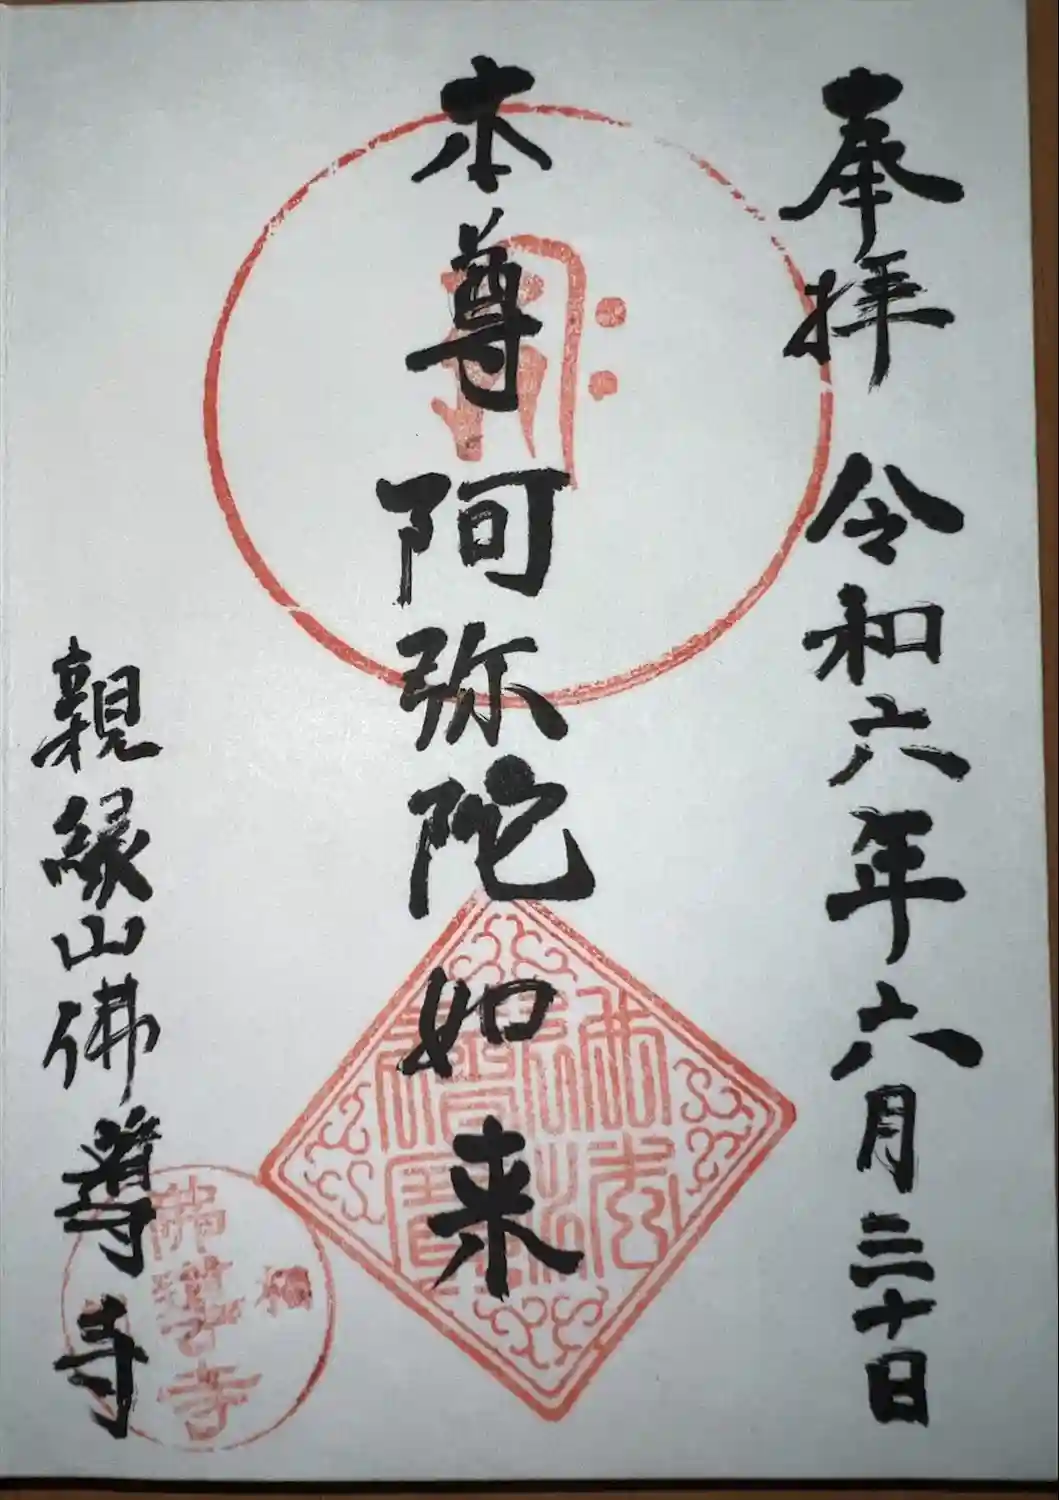 奉拝 令和六年六月三十日
本尊阿弥陀如来
親縁山佛導寺
佛法僧寳
佛導寺